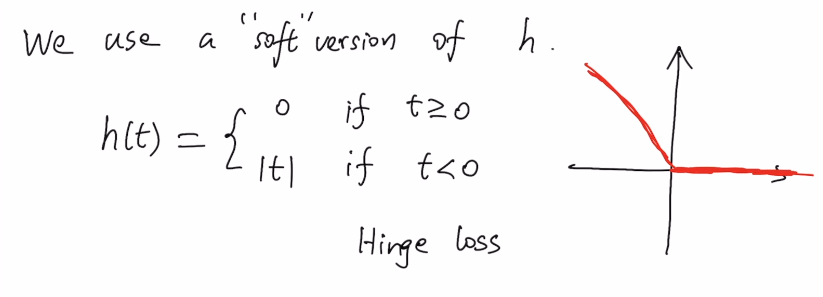 We use a "soft" version of h.
h(t) = { 0 if t ≥ 0
|t| if t < 0
Hinge loss